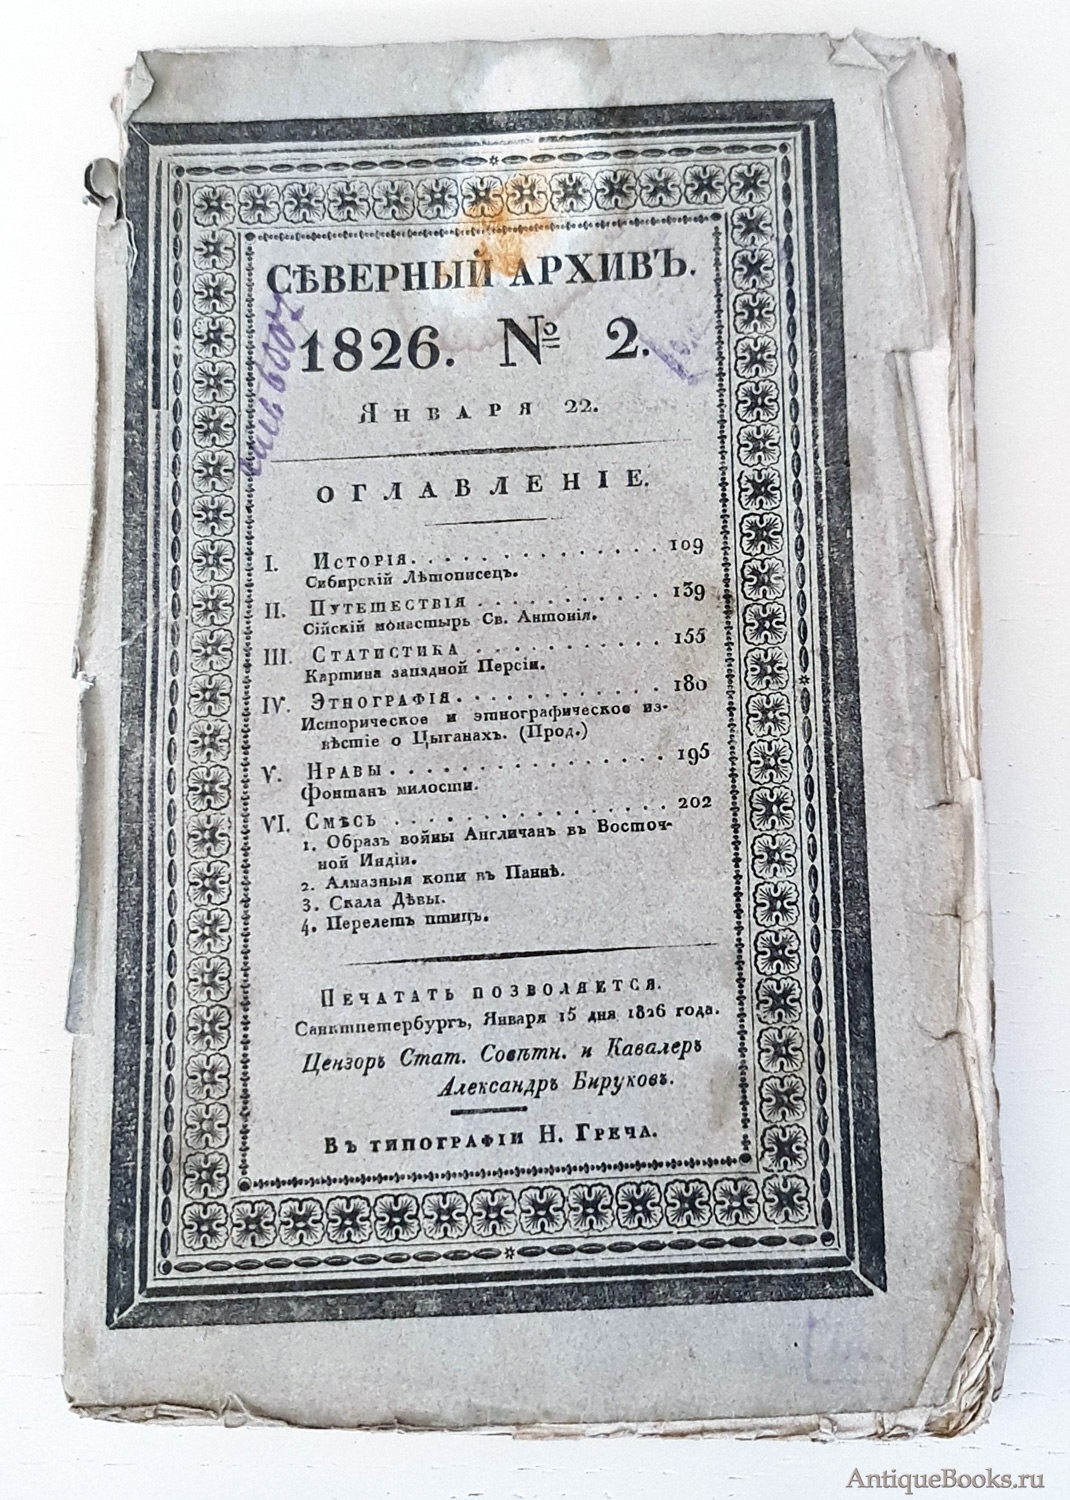 СѢВЕРНЫЙ АРХИВЪ.
1826. № 2.
Января 22.
ОГЛАВЛЕНІЕ.
I. Исторія. . . . . . . . . . . . . . 109
Сибирскій Лѣтописецъ.
II. Путешествія . . . . . . . . . . . 139
Сійскій монастырь Св. Антонія.
III. Статистика . . . . . . . . . . . 155
Картина западной Персіи.
IV. Этнографія. . . . . . . . . . . . 180
Историческое и этнографическое из-
вѣстіе о Цыганахъ. (Прод.)
V. Нравы . . . . . . . . . . . . . . . 195
Фонтанъ милости.
VI. Смѣсь . . . . . . . . . . . . . . 202
1. Образъ войны Англичанъ въ Восточ-
ной Индіи.
2. Алмазныя копи въ Паннѣ.
3. Скала Дѣвы.
4. Перелетъ птицъ.
Печатать позволяется.
Санктпетербургъ, Января 15 дня 1826 года.
Цензоръ Стат. Совѣтн. и Кавалеръ
Александръ Бируковъ.
Въ типографіи Н. Греча.
AntiqueBooks.ru